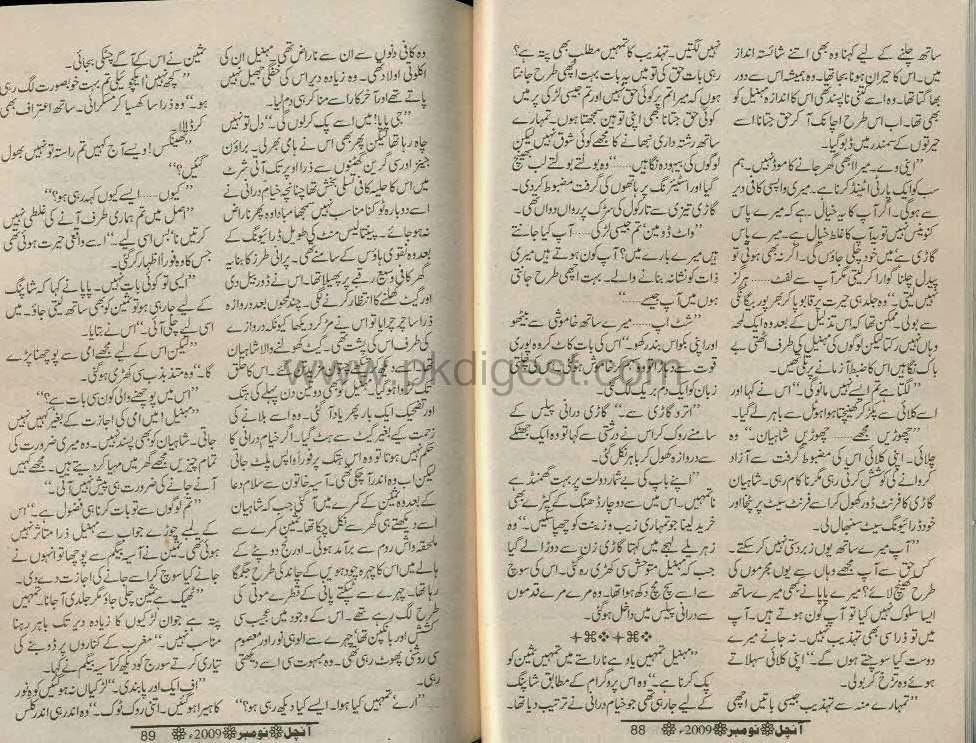 ساتھ چلنے کے لیے کہنا وہ بھی اتنے شائستہ انداز
میں۔ اس کا حیران ہونا بجا تھا۔ وہ ہمیشہ اس سے دور
بھاگتا تھا۔ وہ اسے کتنی ناپسند تھی اس کا اندازہ مہنیل کو
تھا۔ اب اس طرح اچانک آ کر حق جتانا اسے
حیرتوں کے سمندر میں ڈبو گیا۔
"اپنی وے۔ میرا ابھی گھر جانے کا موڈ نہیں۔ ہم
سب کو ایک پارٹی اٹینڈ کرنا ہے۔ میری واپسی کافی دیر
سے ہوگی۔ اگر آپ کا یہ خیال ہے کہ میرے پاس
کنوینس نہیں تو یہ آپ کا غلط خیال ہے۔ میرے پاس
گاڑی ہے میں خود چلی جاؤں گی۔ اگر نہ بھی ہوتی تو
پیدل چلنا گوارا کرلیتی مگر آپ سے لفٹ...... ہرگز
نہیں لیتی۔" وہ جلد ہی حیرت پر قابو پا کر بھرپور بیگانگی
سے بولی ممکن تھا کہ اس تذلیل کے بعد وہ ایک لمحہ
وہاں نہیں رکتا لیکن لوگوں کی مہنیل کی طرف اٹھتی بے
باک نگاہیں اس کا ضبط آزمانے پر تلی تھیں۔
"لگتا ہے تم ایسے نہیں مانو گی۔" اس نے کہا اور
اسے کلائی سے پکڑ کر کھینچتا ہوا ہوٹل سے باہر لے گیا۔
"چھوڑیں مجھے...... چھوڑیں شاہیان۔" وہ
چلائی۔ اپنی کلائی اس کی مضبوط گرفت سے آزاد
کروانے کی کوشش کرتی رہی مگر ناکام رہی۔ شاہیان
گاڑی کا فرنٹ ڈور کھول کر اسے فرنٹ سیٹ پر پٹخا اور
خود ڈرائیونگ سیٹ سنبھال لی۔
"آپ میرے ساتھ یوں زبردستی نہیں کرسکتے۔
کس حق سے آپ مجھے وہاں سے یوں مجرموں کی
طرح کھینچ لائے؟ میرے پاپا نے بھی میرے ساتھ
ایسا سلوک نہیں کیا تو آپ کون ہوتے ہیں۔ آپ
میں تو ذرا سی بھی تہذیب نہیں۔ نہ جانے میرے
دوست کیا سوچتے ہوں گے۔" اپنی کلائی سہلاتے
ہوئے وہ تڑخ کر بولی۔
"تمہارے منہ سے تہذیب جیسی باتیں اچھی
نہیں لگتیں۔ تہذیب کا تمہیں مطلب بھی پتہ ہے؟
رہی بات حق کی تو میں یہ بات بہت اچھی طرح جانتا
ہوں کہ میرا تم پر کوئی حق نہیں اور تم جیسی لڑکی پر میں
کوئی حق جتانا بھی اپنی توہین سمجھتا ہوں۔ تمہارے
ساتھ رشتہ داری نبھانے کا مجھے کوئی شوق نہیں لیکن
لوگوں کی بیہودہ نگاہیں......" وہ بولتے بولتے لب بھینچ
گیا اور اسٹیئرنگ پر ہاتھوں کی گرفت مضبوط کردی۔
گاڑی تیزی سے تارکول کی سڑک پر رواں دواں تھی۔
"واٹ ڈو مین تم جیسی لڑکی...... آپ کیا جانتے
ہیں میرے بارے میں؟ آپ کون ہوتے ہیں میری
ذات کو نشانہ بنانے والے۔ بہت اچھی طرح جانتی
ہوں میں آپ جیسے......"
"شٹ اپ...... میرے ساتھ خاموشی سے بیٹھو
اور اپنی بکواس بند رکھو۔" اس کی بات کاٹ کر وہ پوری
قوت سے دھاڑا تو وہ سہم کر خاموش ہوگئی۔ اس کی چلتی
زبان کو ایک دم بریک لگ گئی۔
"اترو گاڑی سے۔" گاڑی درانی پیلس کے
سامنے روک کر اس نے درشتی سے کہا تو وہ ایک جھٹکے
سے دروازہ کھول کر باہر نکل گئی۔
"اپنے باپ کی بے شمار دولت پر بہت گھمنڈ ہے
نا تمہیں۔ اس میں سے دو چار ڈھنگ کے کپڑے بھی
خرید لینا جو تمہاری زیب و زینت کو چھپا سکیں۔" وہ
زہریلے لہجے میں کہتا گاڑی زن سے دوڑا لے گیا
جب کہ مہنیل متوحش سی کھڑی رہ گئی۔ اس کی سوچ
سے اسے سچ مچ دکھ ہوا تھا۔ وہ مرے مرے قدموں
سے درانی پیلس میں داخل ہوگئی۔
"مہنیل تمہیں یاد ہے نا راستے میں تمہیں عین کو
پک کرنا ہے۔" وہ اس پروگرام کے مطابق شاپنگ
کے لیے جا رہی تھی جو خیام درانی نے ترتیب دیا تھا۔
آنچل نومبر 2009ء 88
وہ کافی دنوں سے ان سے ناراض تھی۔ مہنیل ان کی
اکلوتی اولاد تھی۔ وہ زیادہ دیر اس کی خفگی جھیل نہیں
پاتے تھے اور آخر کار اسے منا کر ہی دم لیا۔
"جی پاپا! میں اسے پک کرلوں گی۔" دل تو نہیں
چاہ رہا تھا لیکن پھر بھی اس نے ہامی بھرلی۔ براؤن
جینز اور سی گرین گھٹنوں سے ذرا اوپر تک آتی شرٹ
میں اس کا حلیہ کافی تسلی بخش تھا چنانچہ خیام درانی نے
اسے دوبارہ ٹوکنا مناسب نہیں سمجھا مبادا وہ پھر ناراض
نہ ہوجائے۔ پینتالیس منٹ کی طویل ڈرائیونگ کے
بعد وہ نقوی ہاؤس کے سامنے تھی۔ پرانی طرز کا بنا یہ
گھر کافی وسیع رقبے پر پھیلا تھا۔ اس نے ڈور بیل دی
اور گیٹ کھلنے کا انتظار کرنے لگی۔ چند لمحوں بعد دروازہ
ذرا سا چرچرایا تو اس نے مڑ کر دیکھا کیونکہ دروازے
کی طرف اس کی پشت تھی۔ گیٹ کھولنے والا شاہیان
تھا۔ اسے دیکھ کر مہنیل ٹھٹکی۔ اس کا حلق
تک کڑوا ہوگیا۔ مہنیل کو بھی دو تین دن پہلے کی ہتک
اور تضحیک ایک بار پھر یاد آ گئی۔ وہ اسے بلانے کی
زحمت کیے بغیر گیٹ سے ہٹ گیا۔ اگر خیام درانی کا
حکم نہیں ہوتا تو وہ اس ہتک پر فوراً واپس پلٹ جاتی
لیکن اب وہ اندر آ چکی تھی۔ آسیہ خاتون سے سلام دعا
کے بعد وہ عین کے کمرے میں آگئی جب کہ شاہیان
اسے دیکھتے ہی گھر سے نکل چکا تھا۔ عین کمرے سے
ملحقہ واش روم سے برآمد ہوئی۔ اورنج دوپٹے کے
ہالے میں اس کا چہرہ چودھویں کے چاند کی طرح جگمگا
رہا تھا۔ چہرے سے ٹپکتے پانی کے قطرے موتی کی
طرح لگ رہے تھے۔ اس کے وجود میں عجیب سی
کشش اور بانکپن تھا۔ چہرے سے الوہی نور اور معصوم
سی روشنی پھوٹ رہی تھی۔ وہ مبہوت سی اسے دیکھتی
رہی۔
"ارے تمہیں کیا ہوا۔ ایسے کیا دیکھ رہی ہو؟"
عین نے اس کے آگے چٹکی بجائی۔
"کچھ نہیں! ایکچوئیلی تم بہت خوبصورت لگ رہی
ہو۔" وہ ذرا سا کھسیا کر مسکرائی۔ ساتھ اعتراف بھی
کر ڈالا۔
"تھینکس! ویسے آج کہیں تم راستہ تو نہیں بھول
گئیں؟"
"کیوں...... ایسے کیوں کہہ رہی ہو؟"
"اصل میں تم ہماری طرف آنے کی غلطی نہیں
کرتیں نا بس اسی لیے۔" اسے واقعی حیرت ہوئی تھی
جس کا وہ فوراً اظہار کر گئی۔
"ایسی تو کوئی بات نہیں۔ پاپا نے کہا کہ شاپنگ
کے لیے جا رہی ہو تو عین کو بھی ساتھ لیتی جاؤ۔ میں
اسی لیے چلی آئی۔" اس نے بتایا۔
"لیکن اس کے لیے مجھے امی سے پوچھنا پڑے
گا۔" وہ متذبذب سی کھڑی ہوگئی۔
"اس میں پوچھنے والی کون سی بات ہے؟"
"مہنیل! میں امی کی اجازت کے بغیر کہیں نہیں
جاتی۔ شاہیان کو بھی پسند نہیں۔ وہ میری ضرورت کی
تمام چیزیں مجھے گھر میں مہیا کر دیتے ہیں۔ مجھے کہیں
آنے جانے کی ضرورت ہی پیش نہیں آئی۔"
"تم لوگوں سے تو بات کرنا ہی فضول ہے۔" اس
کے لیے چوڑے جواب سے مہنیل ذرا متاثر نہیں
ہوئی تھی۔ عین نے آسیہ بیگم سے پوچھا تو انہوں نے
جانے کیا سوچ کر اسے جانے کی اجازت دے دی۔
"ٹھیک ہے عین چلی جاؤ مگر جلدی آ جانا۔ تمہیں
پتہ ہے جوان لڑکیوں کا زیادہ دیر تک باہر رہنا
مناسب نہیں۔" مغرب کے کناروں پر ڈوبنے کی
تیاری کرتے سورج کو دیکھ کر آسیہ بیگم نے کہا۔
"اف ایک اور پابندی۔" لڑکیاں نہ ہوگئیں کوہ نور
کا ہیرا ہوگئیں۔ اتنی روک ٹوک۔" وہ اندر ہی اندر کلس
آنچل نومبر 2009ء 89
www.pkdigest.com